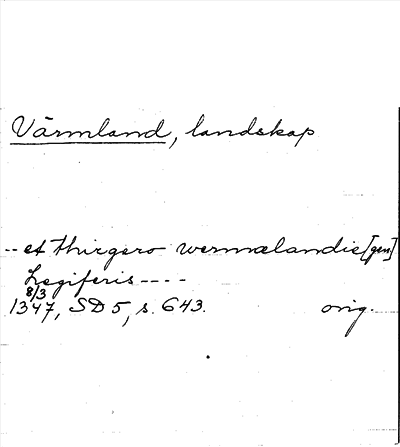 Värmland, landskap
-- et thirgero wermælandie [gen]
Legiferis ----
8/3
1347, SD 5, s. 643. orig.